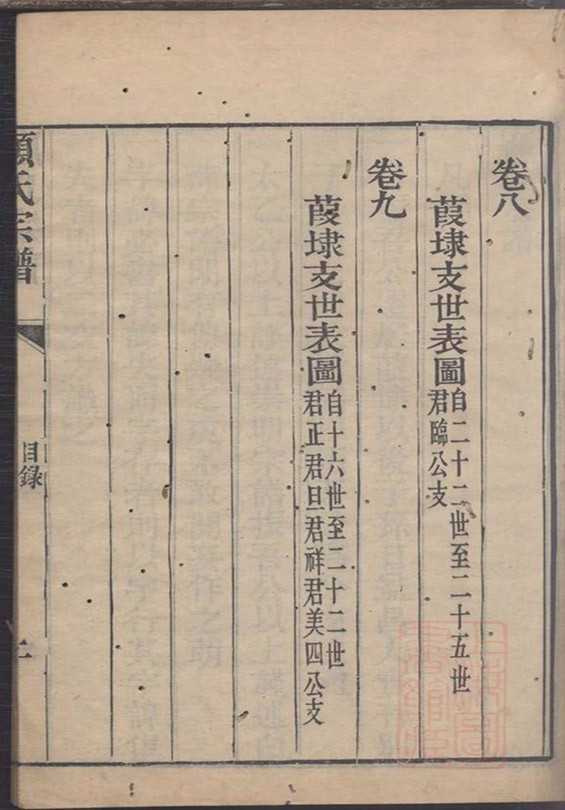 卷八
葭埭支世表圖自二十二世至二十五世
君臨公支
卷九
葭埭支世表圖自十六世至二十二世
君正君旦君祥君美四公支
氏宗譜
目錄